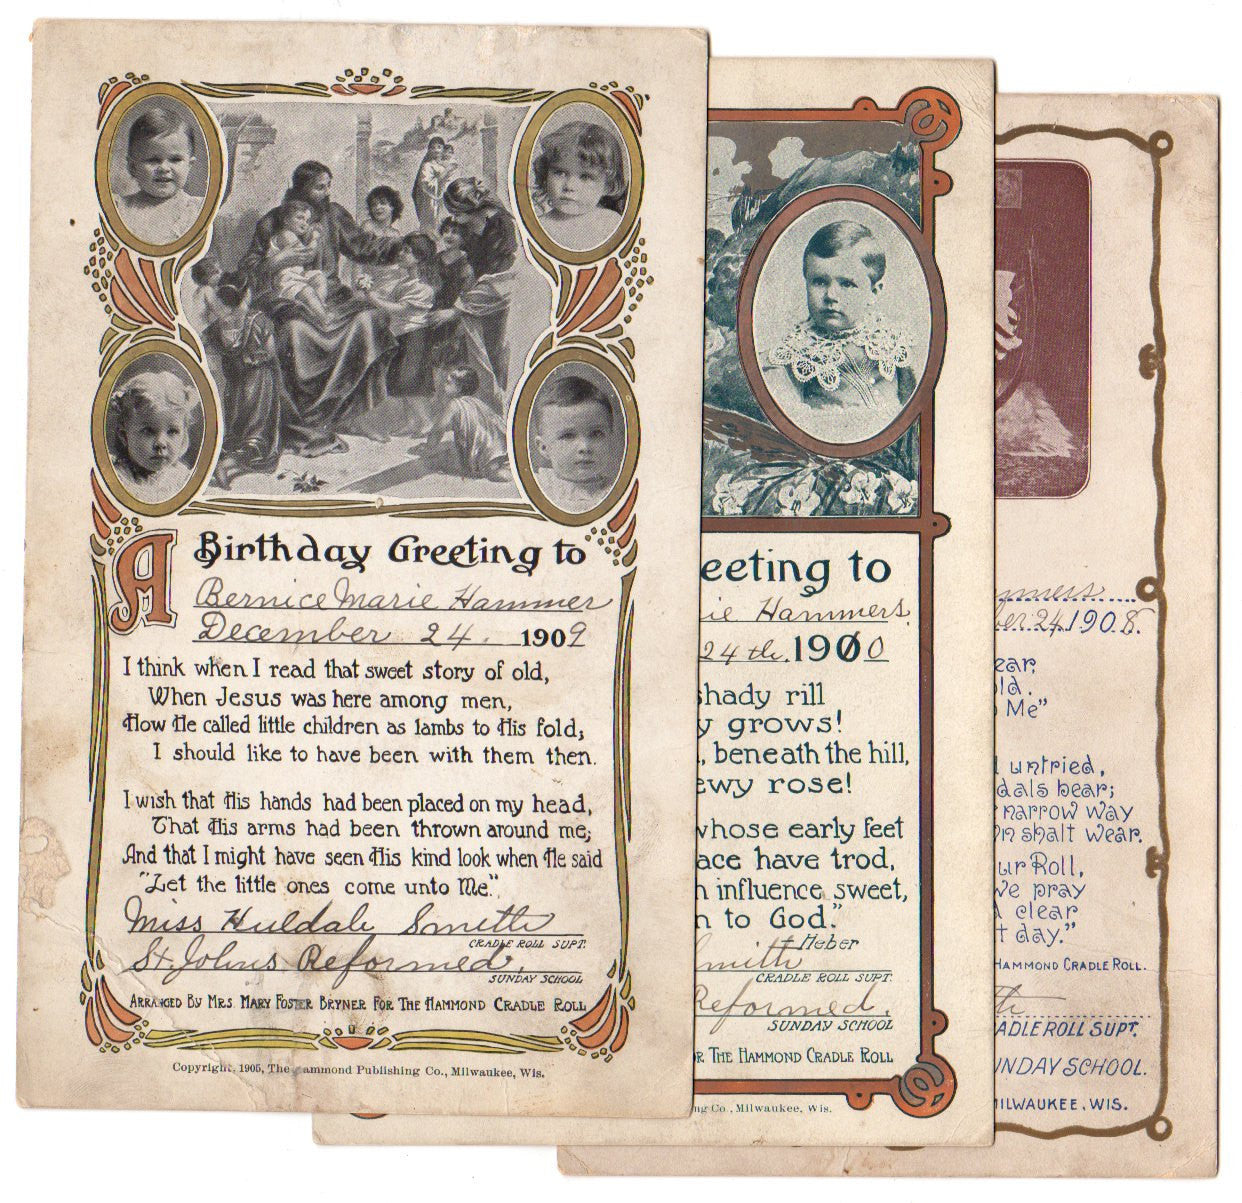 A Birthday Greeting to
Bernice Marie Hammer
December 24, 1909
I think when I read that sweet story of old,
When Jesus was here among men,
How He called little children as lambs to His fold;
I should like to have been with them then.
I wish that His hands had been placed on my head,
That His arms had been thrown around me;
And that I might have seen His kind look when He said
"Let the little ones come unto Me."
Miss Huldah Smith
CRADLE ROLL SUPT.
St Johns Reformed,
SUNDAY SCHOOL
ARRANGED BY MRS. MARY FOSTER BRYNER FOR THE HAMMOND CRADLE ROLL
Copyright, 1905, The Hammond Publishing Co., Milwaukee, Wis.
eeting to
ie Hammers,
24 th. 1900
shady rill
y grows!
, beneath the hill,
ewy rose!
whose early feet
ace have trod,
h influence sweet,
n to God."
Heber
mith
CRADLE ROLL SUPT.
Reformed,
SUNDAY SCHOOL
R THE HAMMOND CRADLE ROLL
ng Co., Milwaukee, Wis.
mmers
ber 24, 1908.
ear,
ld.
o Me"
l untried,
dals bear;
r narrow way
on shalt wear.
ur Roll,
We pray
a clear
t day."
HAMMOND CRADLE ROLL.
th
ADLE ROLL SUPT.
UNDAY SCHOOL.
MILWAUKEE, WIS.